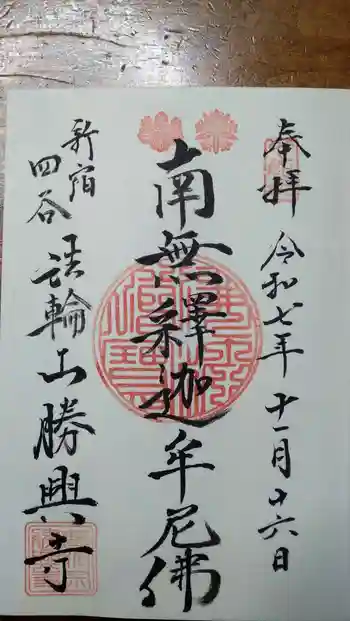 奉拝
令和七年十一月十六日
南無釋迦牟尼佛
新宿
四谷
法輪山勝興寺